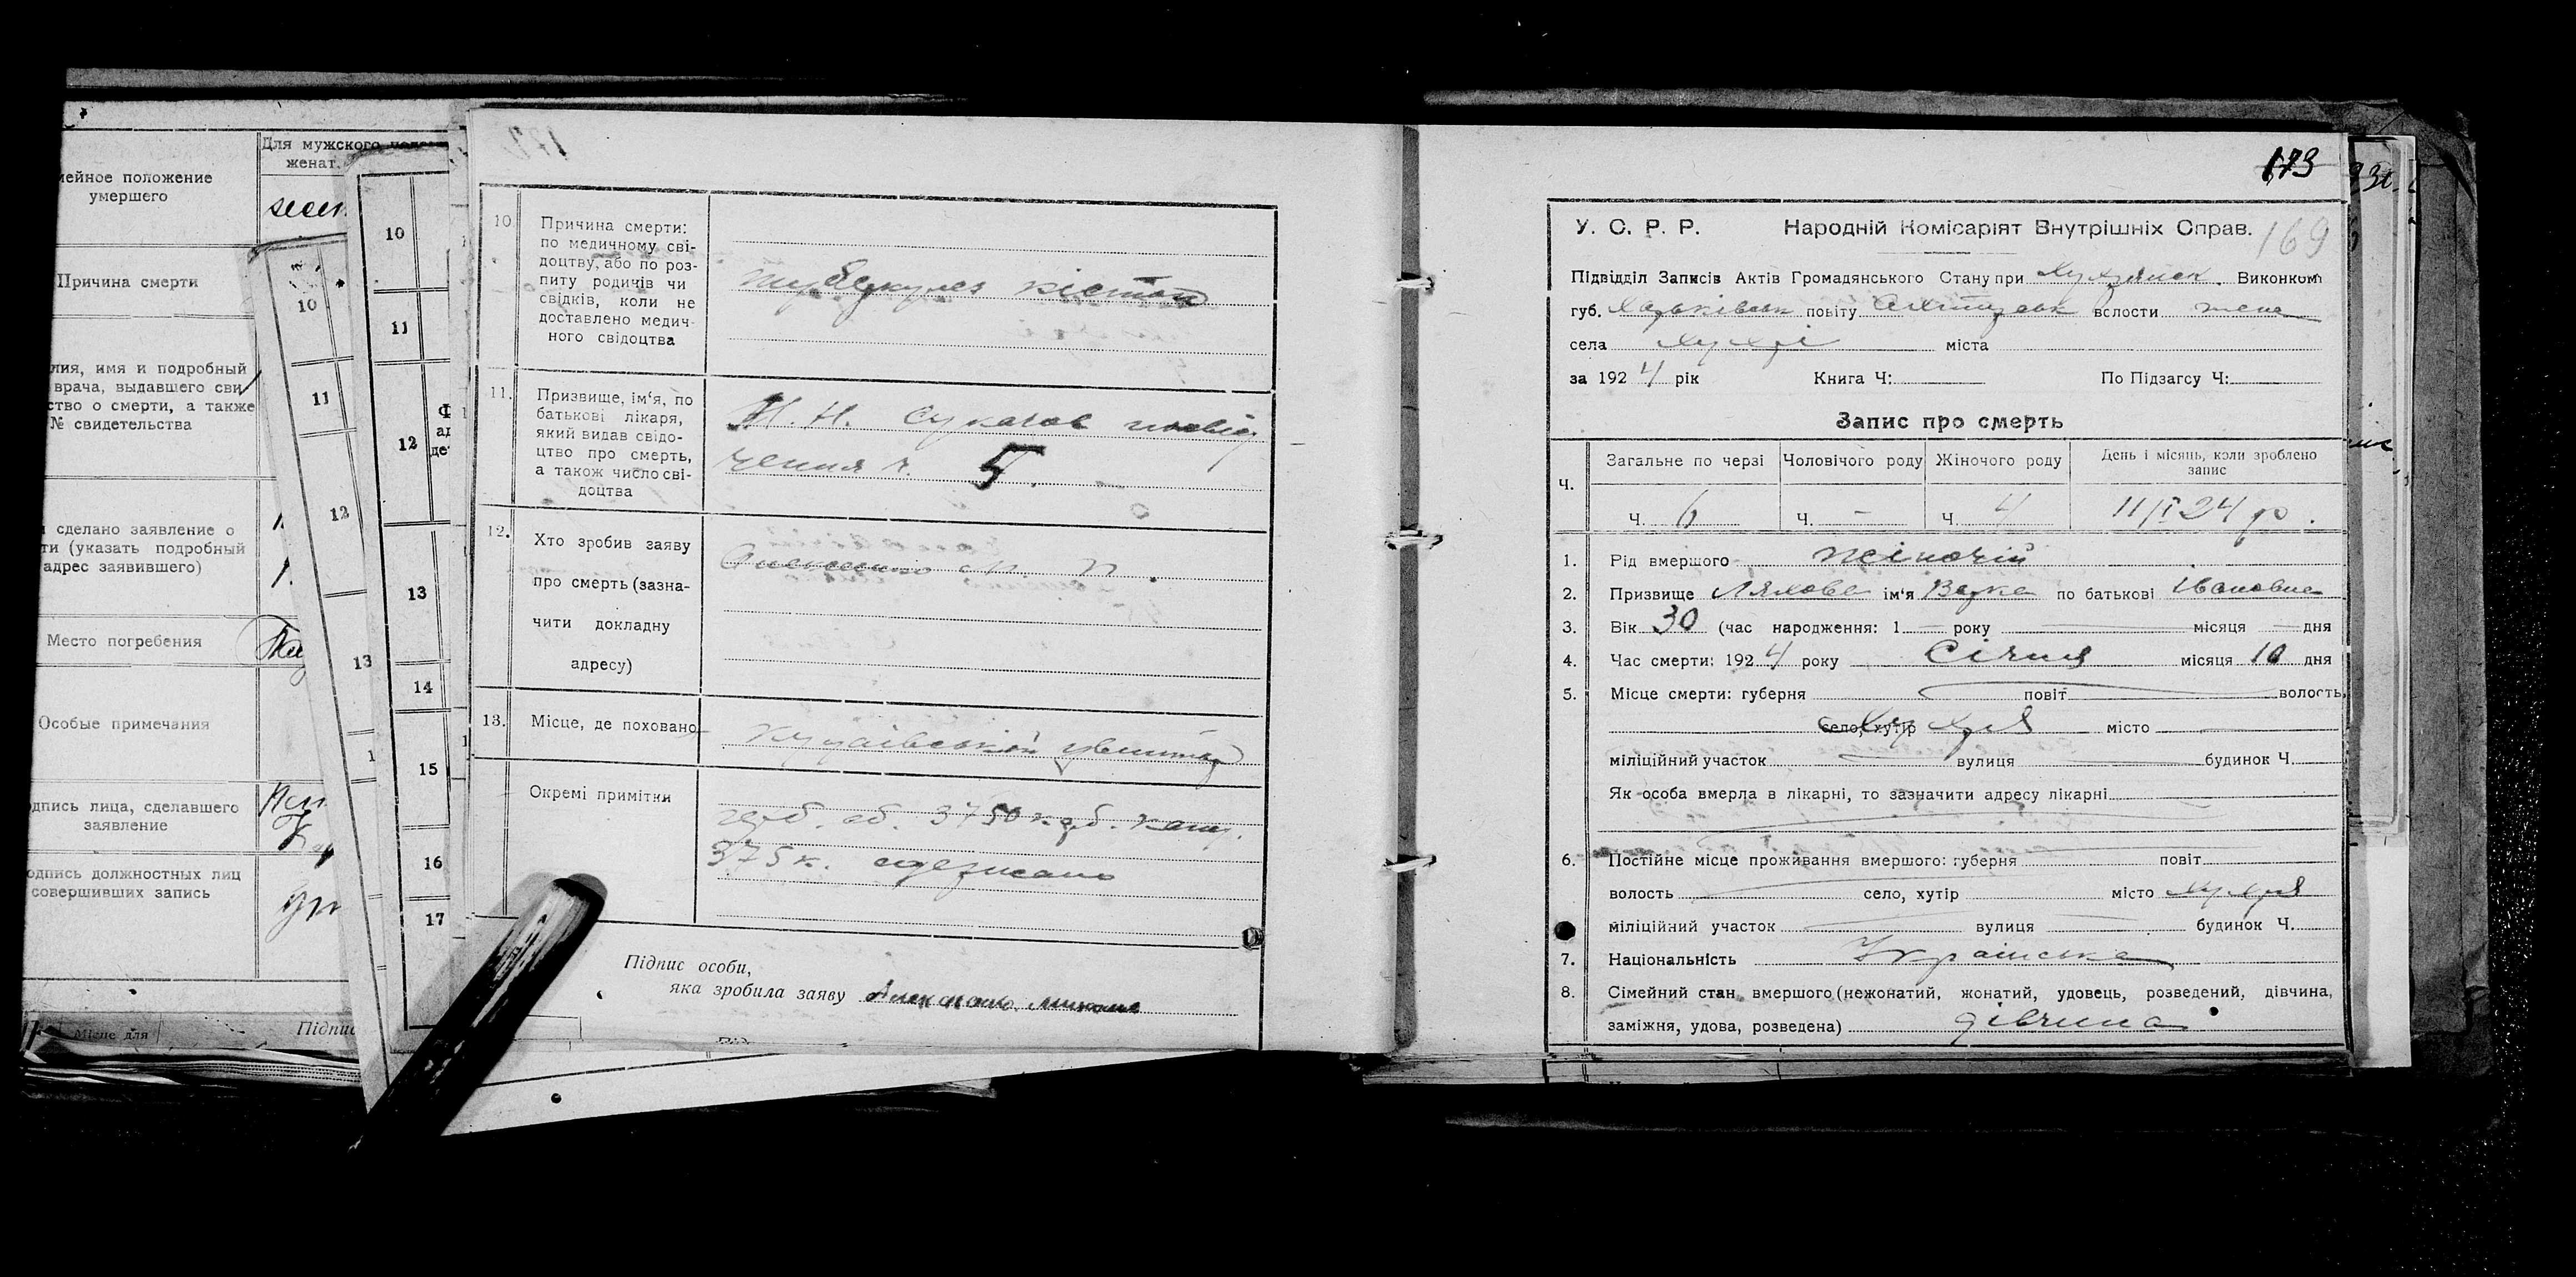 Для мужского
женат.
мейное положение
умершего
Причина смерти
лия, имя и подробный
врача, выдавшего сви
ство о смерти, а также
№ свидетельства
сделано заявление о
ти (указать подробный
адрес заявившего)
Место погребения
Особые примечания
одпись лица, сделавшего
заявление
одпись должностных лиц
совершивших запись
Місце для
Підпис
10
11
12
13
1
10
11
12
13
14
15
16
17
172
10 Причина смерти:
по медичному сві-
доцтву, або по роз-
питу родичів чи
свідків, коли не
доставлено медич-
ного свідоцтва
туберкулез
11. Призвище, ім'я, по
батькові лікаря,
який видав свідо-
цтво про смерть,
а також число сві-
доцтва
Н. Н.
5
12. Хто зробив заяву
про смерть (зазна-
чити докладну
адресу)
13. Місце, де поховано
Окремі примітки
герб. об. 3750 карб. канц.
375 к. одержано
Підпис особи,
яка зробила заяву
173
169
У. С. Р. Р. Народній Комісаріят Внутрішніх Справ.
Підвідділ Записів Актів Громадянського Стану при Хухрянск. Виконком
губ. Харьківськ повіту Охтирськ вслости
села Хухрі міста
за 1924 рік Книга Ч: По Підзагсу Ч:
Запис про смерть
Ч. Загальне по черзі Чоловічого роду Жіночого роду День і місяць, коли зроблено
запис
Ч. 6 Ч. – Ч. 4 11/I 24 р.
1. Рід вмершого жіночій
2. Призвище Ляхова ім'я Варка по батькові Івановна
3. Вік 30 (час народження: 1 — року — місяця — дня
4. Час смерти: 1924 року Січня місяця 10 дня
5. Місце смерти: губерня повіт волость
село, хутір Хухря місто
міліційний участок вулиця будинок Ч.
Як особа вмерла в лікарні, то зазначити адресу лікарні
6. Постійне місце проживання вмершого: губерня повіт
волость село, хутір місто Хухря
міліційний участок вулиця будинок Ч.
7. Національність Українська
8. Сімейний стан вмершого (нежонатий, жонатий, удовець, розведений, дівчина,
заміжня, удова, розведена) дівчина